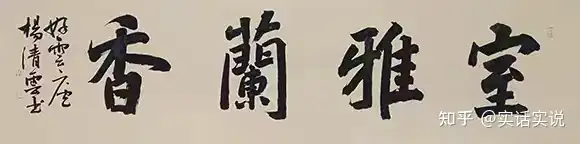 室雅蘭香
好雲
楊清雲书
知乎 @实话实说